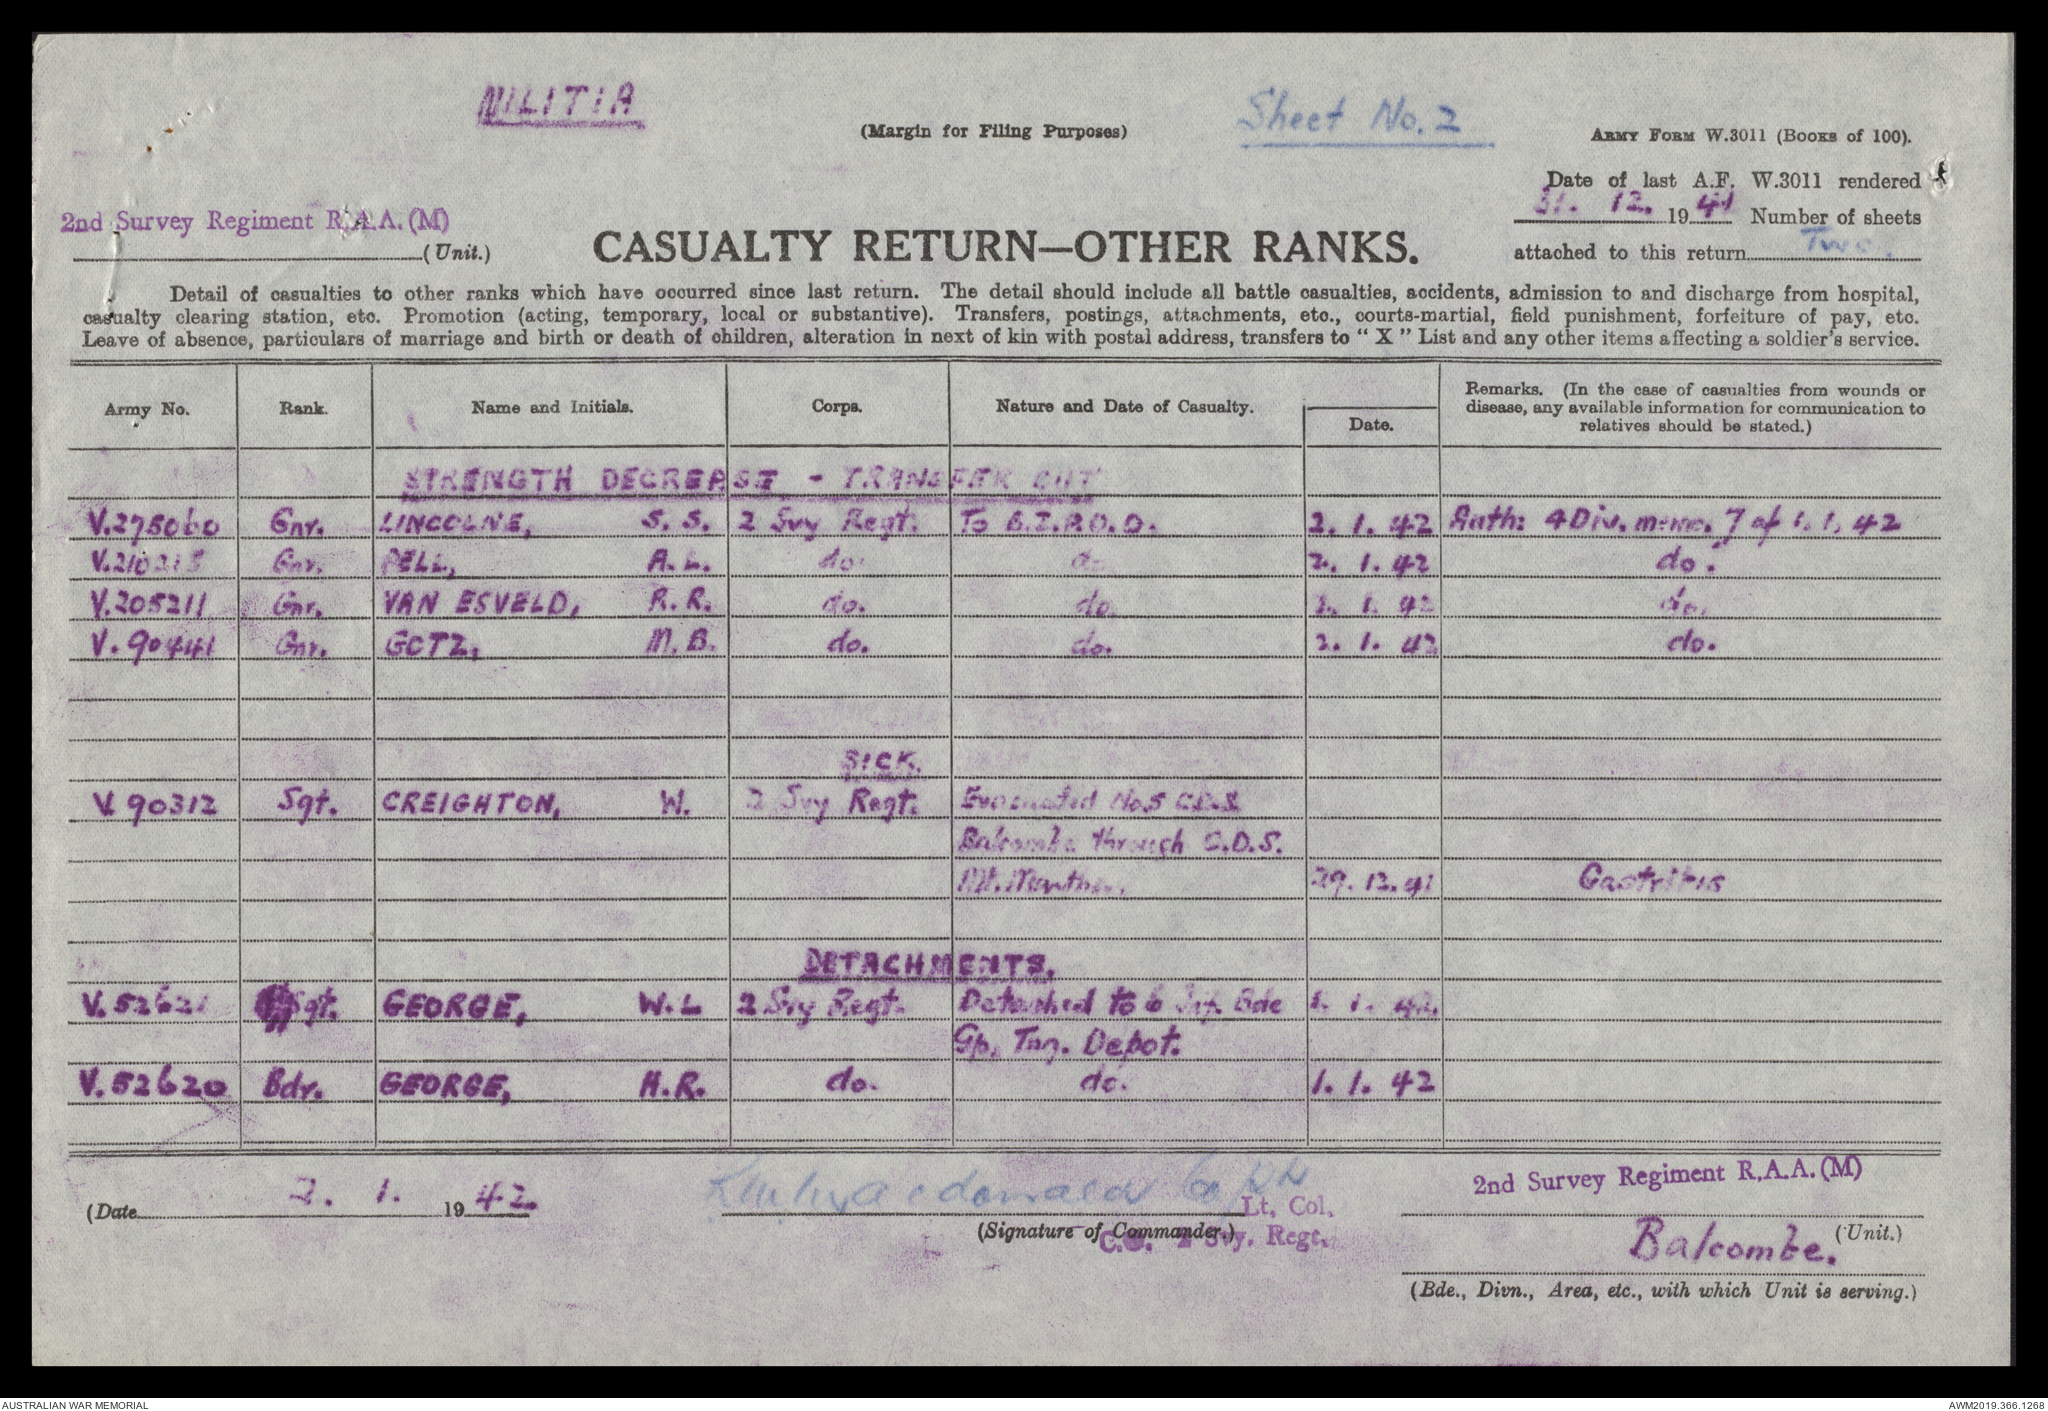 MILITIA
(Margin for Filing Purposes)
Sheet No. 2
ARMY FORM W.3011 (BOOKS of 100).
Date of last A.F. W.3011 rendered
31. 12. 1941 Number of sheets
attached to this return Two.
2nd Survey Regiment R.A.A. (M)
(Unit.)
CASUALTY RETURN—OTHER RANKS.
Detail of casualties to other ranks which have occurred since last return. The detail should include all battle casualties, accidents, admission to and discharge from hospital,
casualty clearing station, etc. Promotion (acting, temporary, local or substantive). Transfers, postings, attachments, etc., courts-martial, field punishment, forfeiture of pay, etc.
Leave of absence, particulars of marriage and birth or death of children, alteration in next of kin with postal address, transfers to " X " List and any other items affecting a soldier's service.
Army No. Rank. Name and Initials. Corps. Nature and Date of Casualty. Date. Remarks. (In the case of casualties from wounds or
disease, any available information for communication to
relatives should be stated.)
STRENGTH DECREASE - TRANSFER OUT
V.275060 Gnr. LINCOLNE, S. S. 2 Svy Regt. To 2. 1. 42 Auth: 4 Div. memo. 7 of 1. 1. 42
Gnr. PELL, A. L. do. do. 2. 1. 42 do.
V.205211 Gnr. VAN ESVELD, R. R. do. do. 2. 1. 42 do.
V.90441 Gnr. GOTZ, M. B. do. do. 2. 1. 42 do.
SICK.
V.90312 Sgt. CREIGHTON, W. 2 Svy Regt. Evacuated No.5 C.D.S.
Balcombe through C.D.S.
Mt. Martha. 29. 12. 41 Gastritis
DETACHMENTS.
V.52621 Sgt. GEORGE, W. L 2 Svy Regt. Detached to 6 Inf. Bde 1. 1. 42.
Gp. Tng. Depot.
V.52620 Bdr. GEORGE, H.R. do. do. 1. 1. 42
(Date 2. 1. 1942.
Macdonald
Lt. Col.
(Signature of Commander.)
C.O. 2 Svy. Regt.
2nd Survey Regiment R.A.A. (M)
(Unit.)
Balcombe.
(Bde., Divn., Area, etc., with which Unit is serving.)
AUSTRALIAN WAR MEMORIAL
AWM2019.366.1268